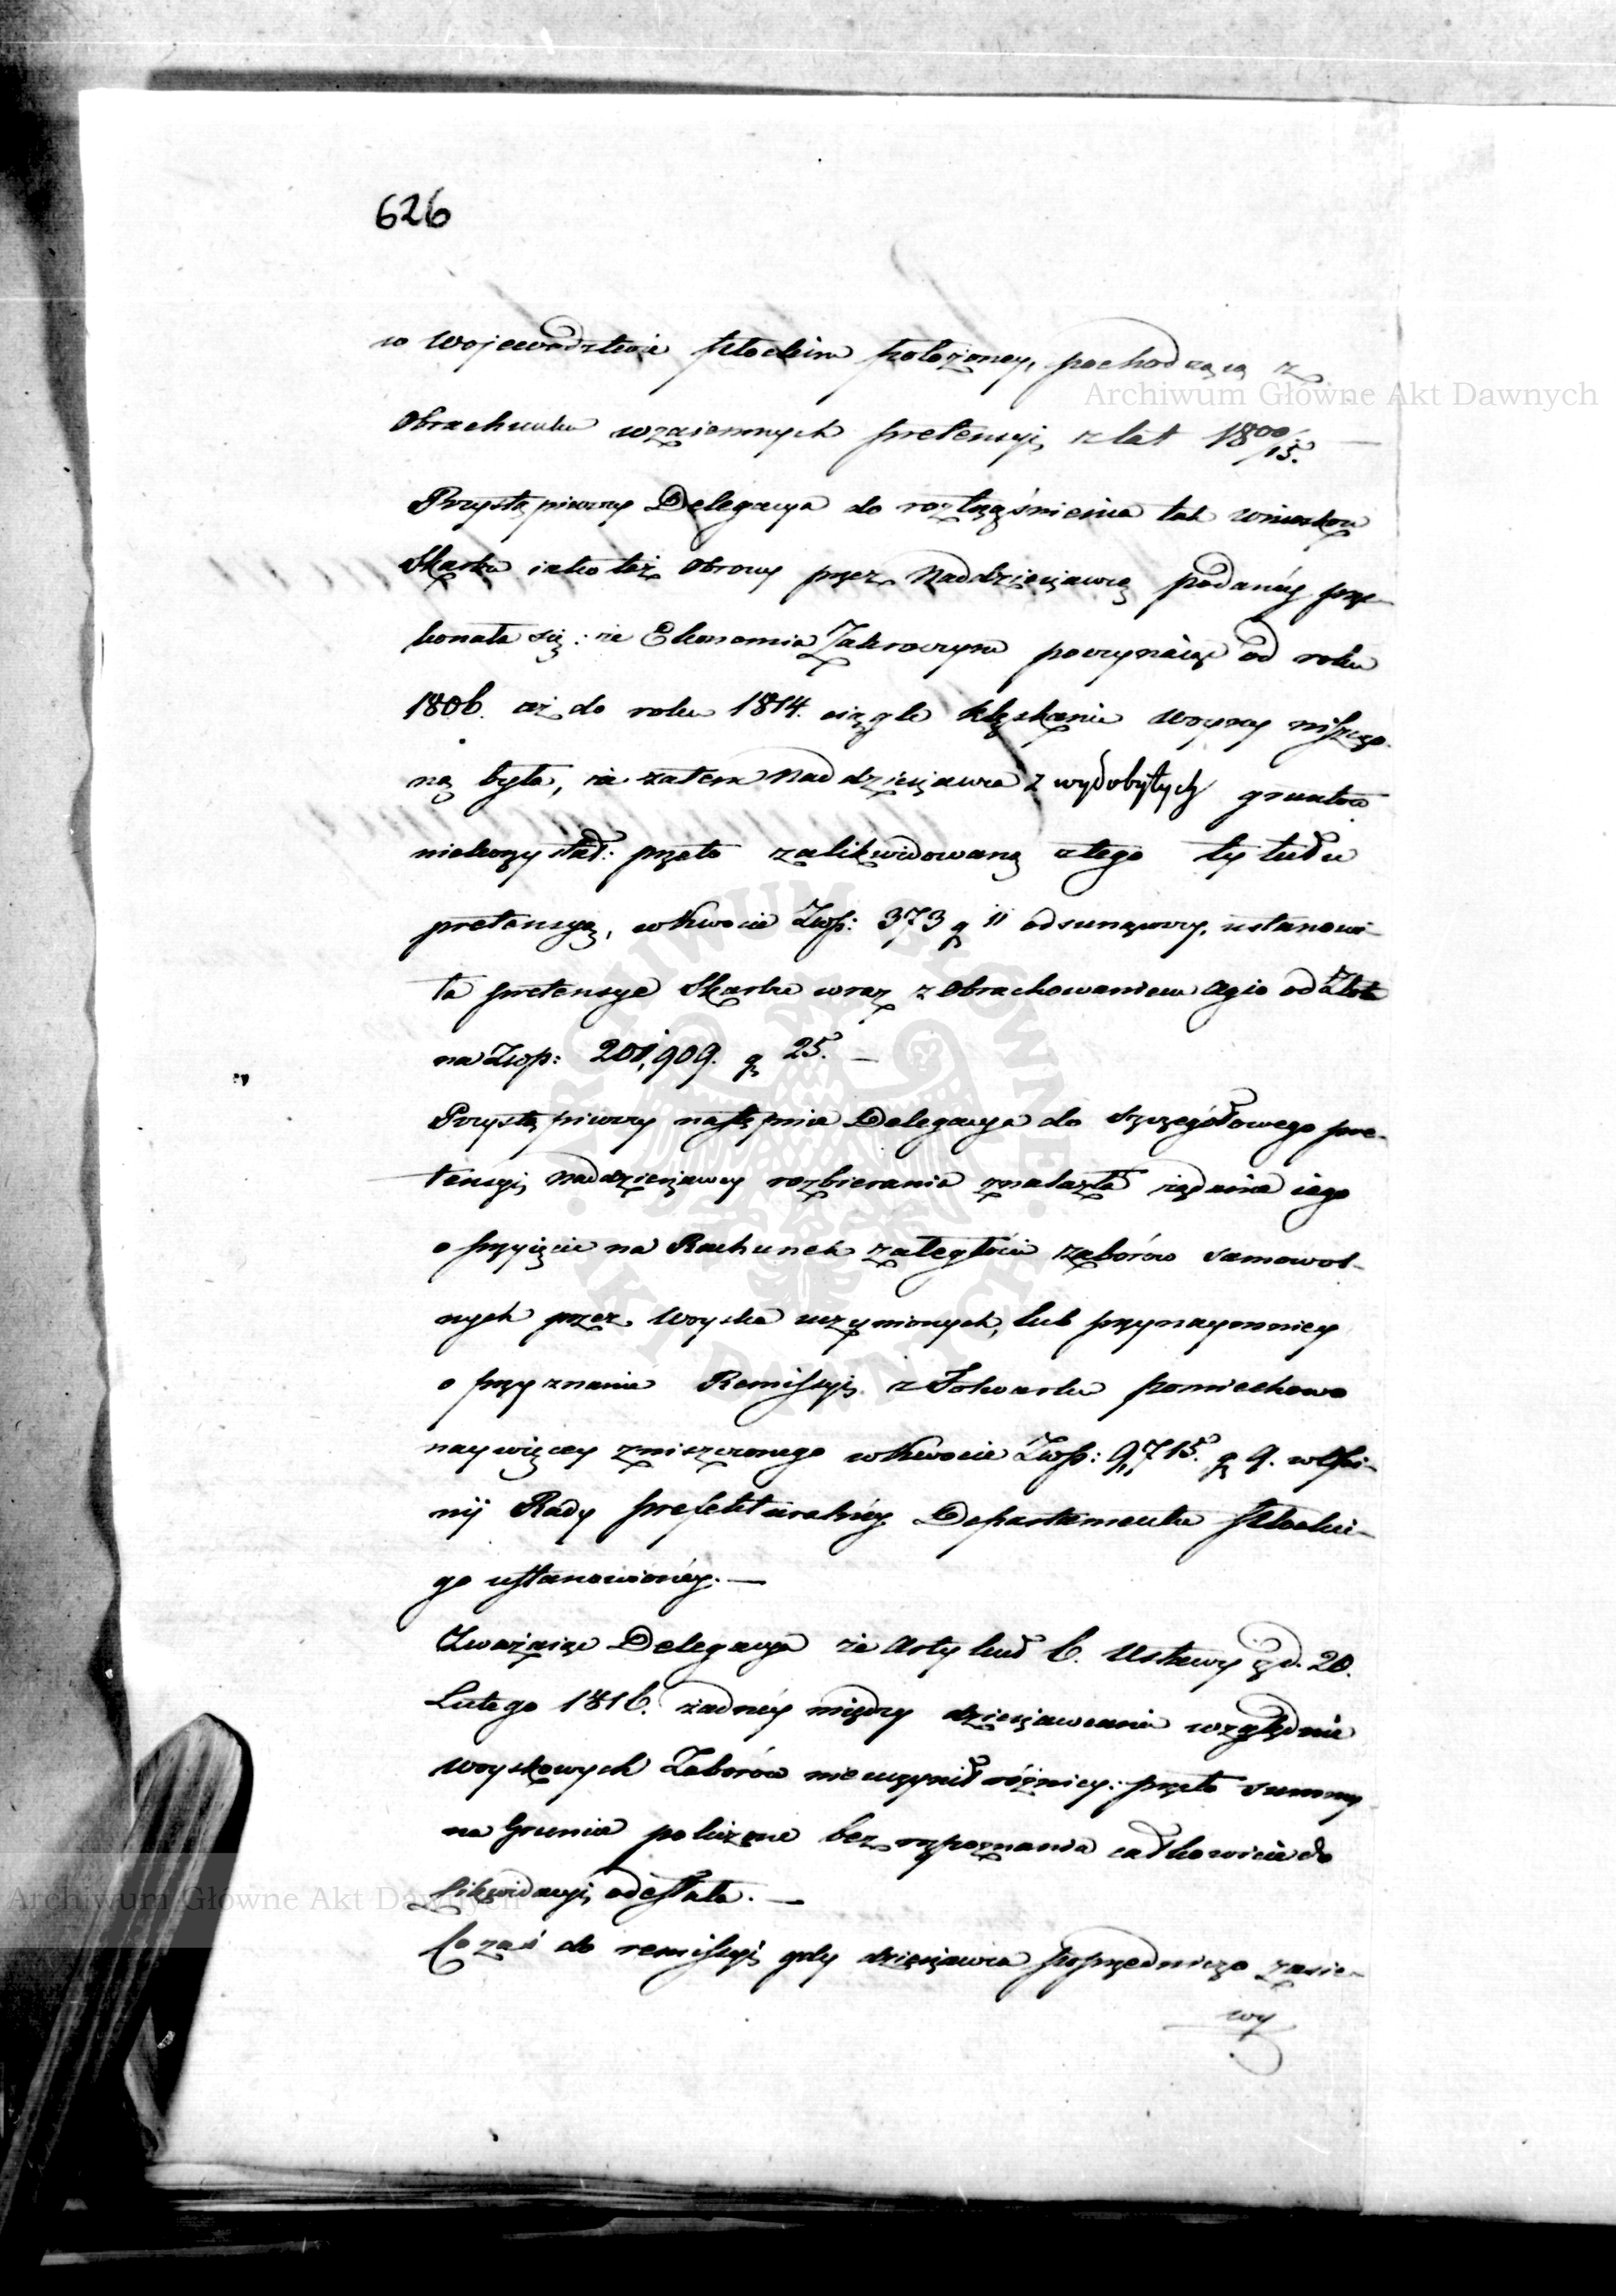 626
w Wojewodztwie Płockim położoney, pochodzącą z
Obrachunku wzaiemnych pretensyi z lat 1800/15. —
Przystąpiwszy Delegacya do roztrząśnienia tak wniosków
Skarbu iako też obrony przez Naddzierżawcę podanéy prze-
konała się: że Ekonomia Zakroczym począwszy od roku
1806. aż do roku 1814. ciągle klęskami woyny niszczo-
ną była, że zatem Naddzierżawca z wydobytych gruntów
niekorzystał: przeto zalikwidowaną z tego tytułu
pretensyą, w kwocie Złp: 373 g 11 odsunąwszy, ustanowi-
ła pretensye Skarbu wraz z obrachowaniem agio od Złota
na Złp: 201,909. g 25. —
Przystąpiwszy następnie Delegacya do szczegółowego pre-
tensyi Naddzierżawcy rozbierania znalazła żądanie iego
o przyięcie na Rachunek zaległości zaborów samowol-
nych przez woyska uczynionych, lub przynaymniey
o przyznanie Remissyi z Folwarku Pomiechowo
naywięcey zniszczonego w kwocie Złp: 9,715. g 9. w Opi-
nij Rady prefekturalnéy Departamentu Płockie-
go ustanowionéy. —
Zważaiąc Delegacya że Artykuł 6. Ustawy z d. 20.
Lutego 1816. żadnéy między dzierżawcami względnie
woyskowych Zaborów nie uczynił różnicy: przeto summy
na Gruncie policzone bez rozpoznania całkowicie do
Likwidacyi odesłała. —
Co zaś do remissyi gdy dzierżawca poprzedniczo zasie-
wy